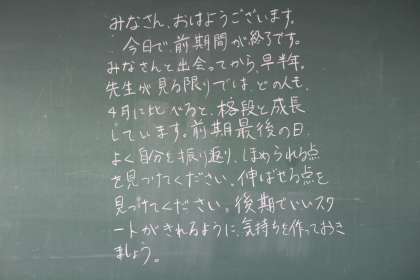 みなさん、おはようございます。
今日で、前期間が終了です。
みなさんと出会ってから、早半年。
先生が見る限りでは、どの人も、
4月に比べると、格段と成長
しています。前期最後の日、
よく自分を振り返り、ほめられる点
を見つけてください。伸ばせる点を
見つけてください。後期でいいスタ
ートがきれるように、気持ちを作っておき
ましょう。